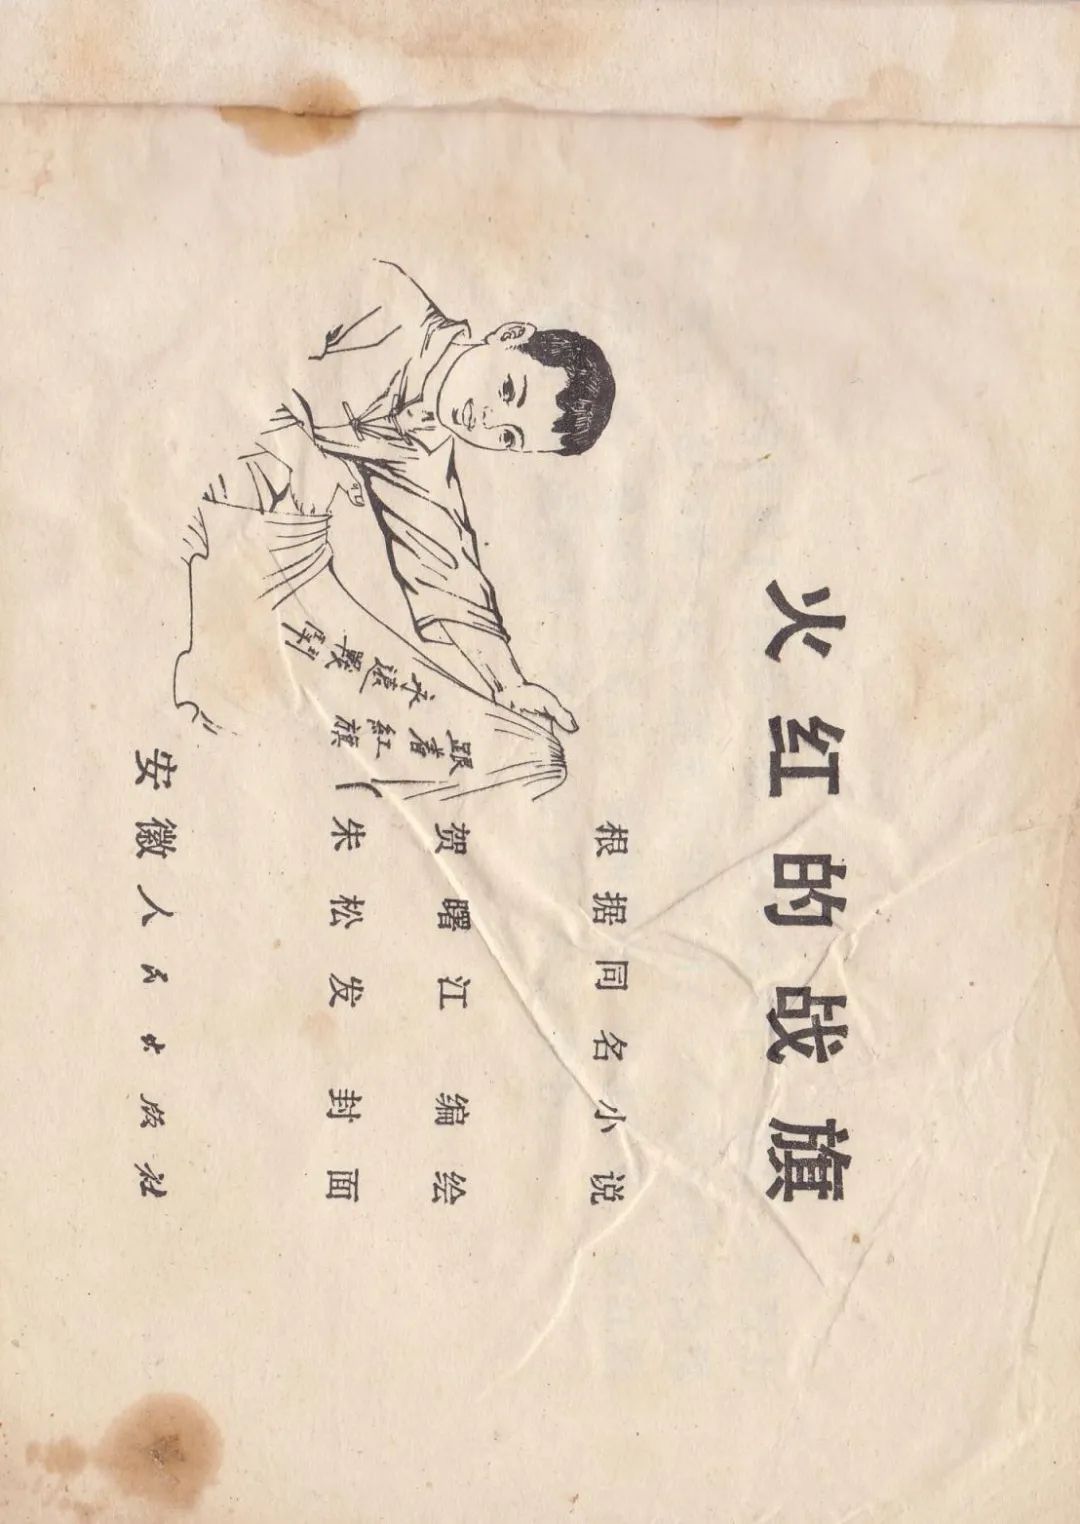 火红的战旗
根据同名小说
贺曙江 编绘
朱松发 封面
安徽人民出版社
跟着
红旗
永远
战斗